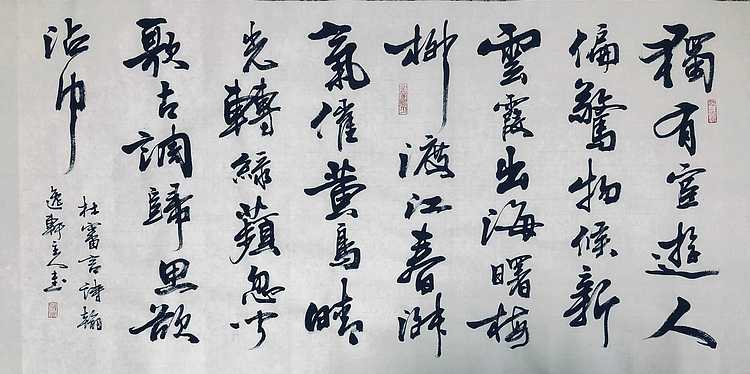 獨有宦遊人
偏驚物候新
雲霞出海曙梅
柳渡江春淑
氣催黄鳥晴
光轉綠蘋忽聞
歌古調歸思欲
沾巾
杜審言詩翰
逸軒主人書